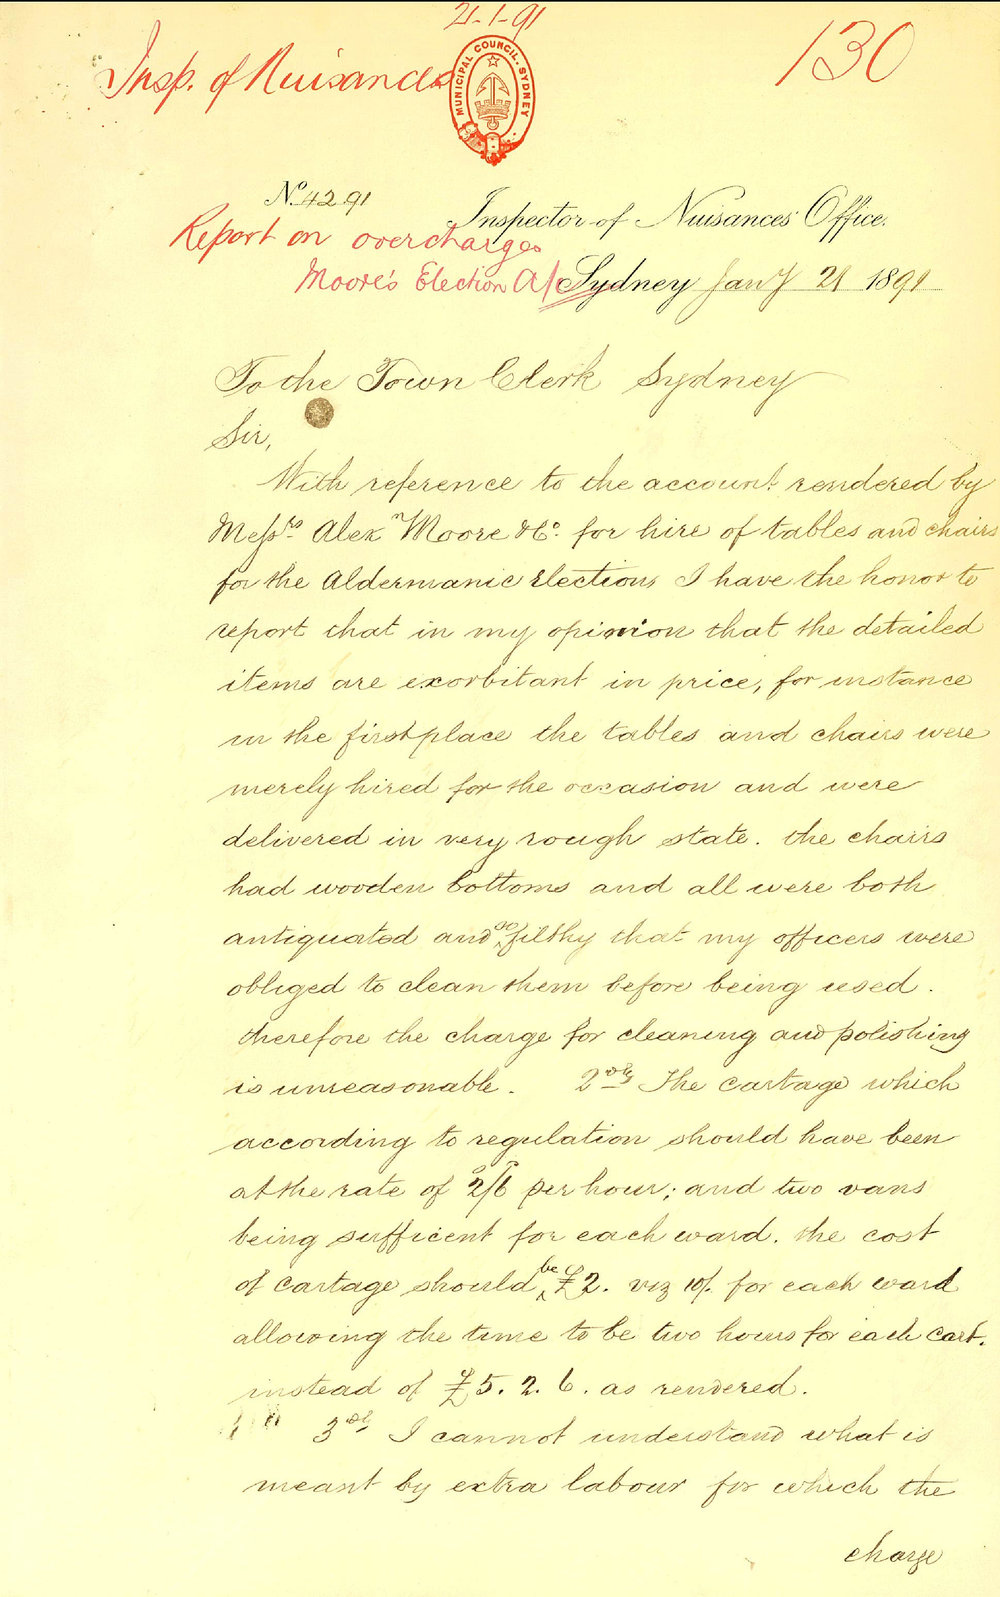 21-1-91
130
Insp. of Nuisances
MUNICIPAL COUNCIL. SYDNEY
No. 42 91
Inspector of Nuisances' Office.
Report on overcharges
Moore's Election A/c
Sydney Jany 21 1891
To the Town Clerk Sydney
Sir,
With reference to the account rendered by
Messrs Alexr Moore & Co. for hire of tables and chairs
for the Aldermanic Elections I have the honor to
report that in my opinion that the detailed
items are exorbitant in price, for instance
in the first place the tables and chairs were
merely hired for the occasion and were
delivered in very rough state. the chairs
had wooden bottoms and all were both
antiquated and so filthy that my officers were
obliged to clean them before being used.
therefore the charge for cleaning and polishing
is unreasonable. 2ndly The cartage which
according to regulation should have been
at the rate of 2/6 per hour; and two vans
being sufficient for each ward. the cost
of cartage should be £2. viz 10/. for each ward
allowing the time to be two hours for each cart.
instead of £5. 2. 6. as rendered.
3rdly I cannot understand what is
meant by extra labour for which the
charge